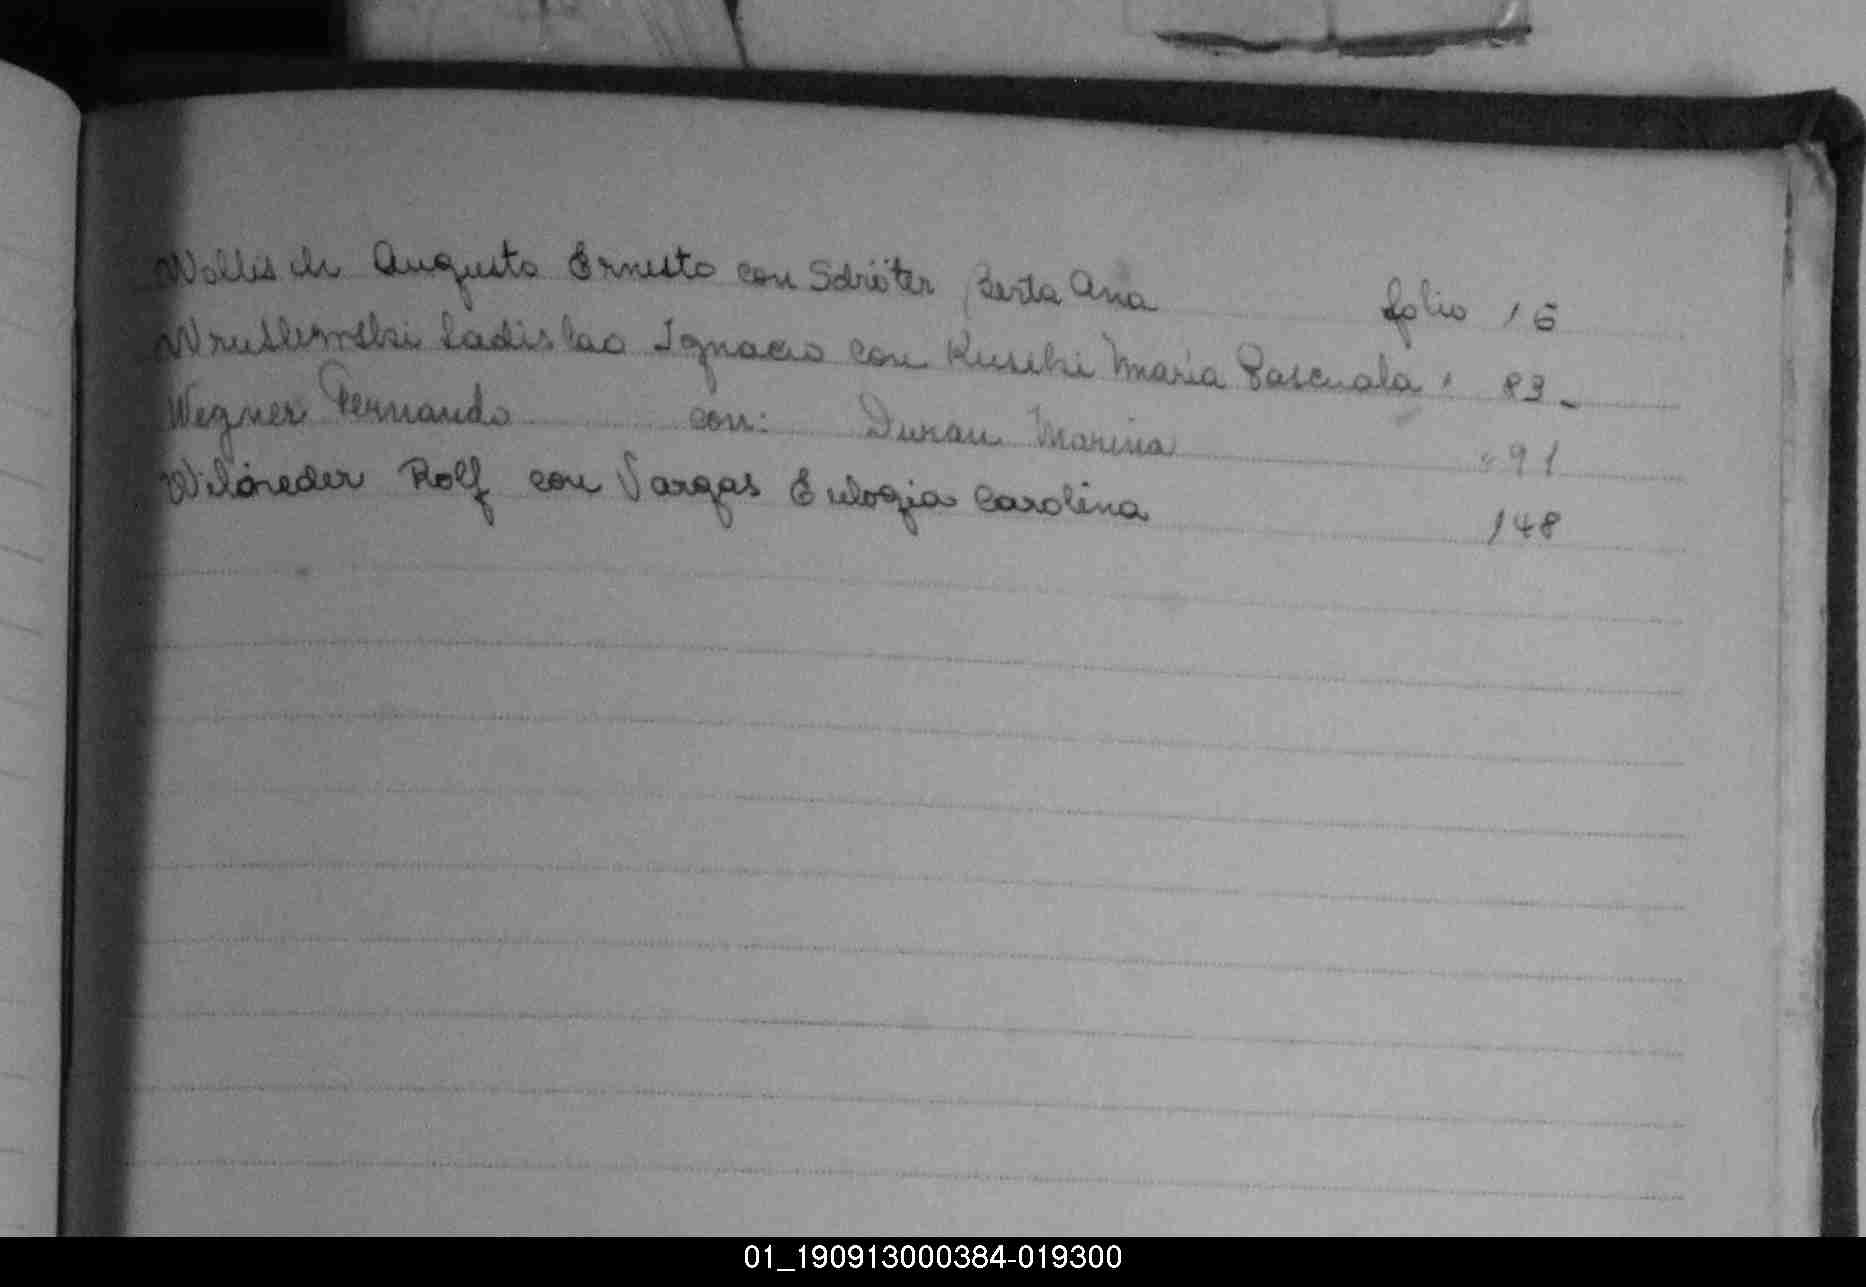 Wollisch Augusto Ernesto con Sdröter Berta Ana folio 16
Ladislao Ignacio con María Pascuala " 83_
Wegner Fernando con: Duran Marina " 91
Rolf con Vargas Eulogia Carolina 148
01_190913000384-019300